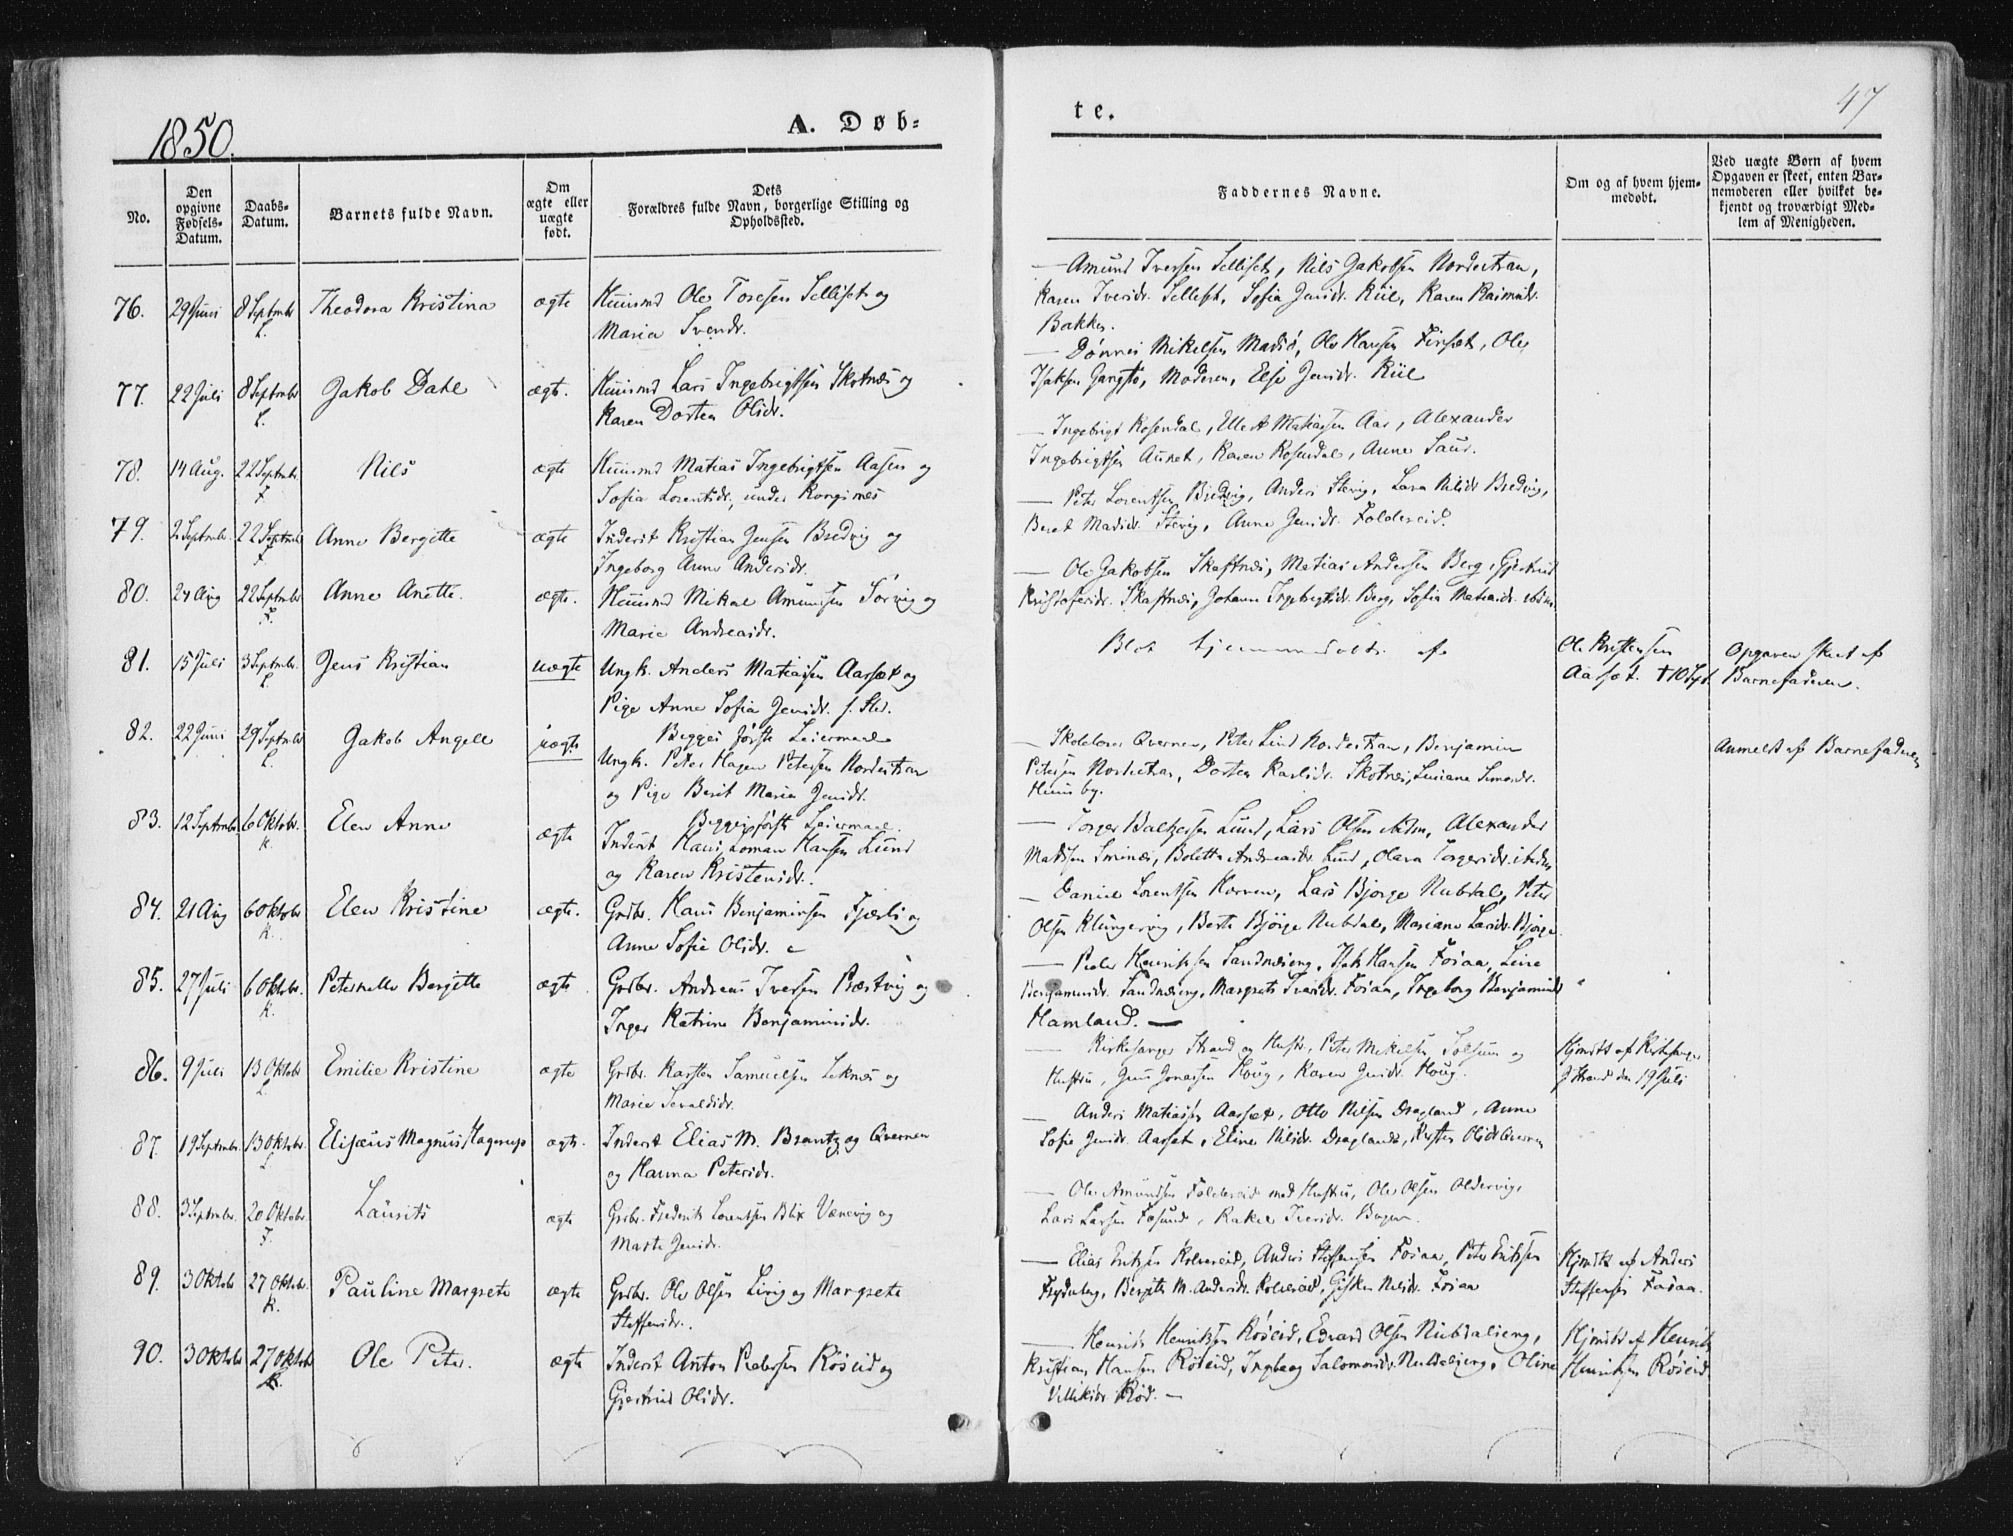 1850.
A. Døb-
te.
47
No.
Den opgivne Fødsels-Datum.
Daabs-Datum.
Barnets fulde Navn.
Om ægte eller uægte født.
Dets Forældres fulde Navn, borgerlige Stilling og Opholdssted.
Faddernes Navne.
Om og af hvem hjem-medøbt.
Ved uægte Børn af hvem Opgaven er skeet, enten Bar-nemoderen eller hvilket be-kjendt og troværdigt Med-lem af Menigheden.
76. 29 Juni 8 Septmbr L. Theodora Kristina ægte Huusmd Ole Toresen Selliset og
Maria Svendr.
— Amund Iversen Selliset, Nils Jakobsen Nordestran,
Karen Iversdr. Selliset, Sofia Jensdr. Riil, Karen
Bakken.
77. 22 Juli 8 Septmbr L. Jakob Dahl ægt. Huusmd Lars Ingebrigtsen Skotnes og
Karen Dortea Olsdr.
— Dønnes Mikelsen Madsø, Ole Hansen Finset, Ole
Isaksen Gangstø, Moderen, Else Jensdr. Riil
78. 14 Aug. 22 Septmbr F. Nils ægte Huusmd Matias Ingebrigtsen Aasen og
Sofia Lorentsdr. under Kongsmoes
— Ingebrigt Rosendal, Matiasen Aas, Alexander
Ingebrigtsen Aunet, Karen Rosendal, Anne
79. 2 Septmbr. 22 Septmbr F. Anne Bergitte ægte Inderst Kristian Jensen Bredvig og
Ingeborg Anne Andersdr.
— Peter Lorentsen Bredvig, Anders Stevig, Lara Nilsdr Bredvig,
Beret Madsdr. Stevig, Anne Jensdr. Foldereid.
80. 24 Aug 22 Septmbr F. Anne Anette. ægte. Huusmd Mikal Amundsen Sørvig og
Marie Andreasdr.
— Ole Jakobsen Skaftnes, Matias Andersen Berg, Gjertrud
Kristofersdr. Skaftnes, Johanna Ingebrigtsdr. Berg, Sofia Matiasdr. ibidm.
81. 15 Juli 3 Septmbr. L. Jens Kristian uægte Ungk. Anders Matiasen Aarset og
Pige Anne Sofia Jensdr. f. Sted.
Begges første Leiermaal
Blot hjemmedøbt af
Ole Kristensen
Aarset. † 10 Spt.
Opgaven skeet af
Barnefaderen.
82. 22 Juni 29 Septmbr L. Jakob Angell uægte Ungk. Peter Hagen Petersen Nordestran
og Pige Berit Maria Jensdr.
Begges første Leiermaal.
— Skolelærer Qvernen, Peter Lind Nordestran, Benjamin
Petersen Nordestran, Dortea Karlsdr. Skotnes, Luciana Simonsdr.
Huusby.
Anmeldt af Barnefaderen
83. 12 Septmbr. 6 Oktobr. K. Elen Anne ægte Inderst Hans Homan Hansen Lund
og Karen Kristensdr.
— Torger Baltzersen Lund, Lars Olsen Holm, Alexander
Madsen Smines, Bolette Andreasdr Lund, Olava Torgersdr. ibidm
84. 21 Aug 6 Oktobr K. Elen Kristine ægte. Grdbr. Hans Benjaminsen Fjærli og
Anne Sofie Olsdr.
— Daniel Lorentsen Horven, Lars Bjørge Nubdal, Peter
Olsen Klungervig, Berte Bjørge Nubdal, Mariane Larsdr. Bjørge
85. 27 Juli 6 Oktobr. K. Peternelle Bergitte ægte. Grdbr. Andreas Iversen Præstvig og
Inger Katrine Benjaminsdr.
— Peder Henriksen Sandnæseng, Isak Hansen Fosaa, Leine
Benjaminsdr. Sandnæseng, Margrete Fosaa, Ingeborg Benjaminsdr
Hamland. —
86. 9 Juli 13 Oktobr L. Emilie Kristine ægte Grdbr. Karsten Samuelsen Leknes og
Marie Sevaldsdr.
— Kirkesanger Strand og Hustr., Peter Mikelsen Solsem og
Hustru, Jens Jonassen Houg, Karen Jensdr. Houg.
Hjmdbt af Kirkesanger
J Strand den 19 Juli
87. 19 Septmbr. 13 Oktobr. L. Elisæus Magnus Hagerup ægte. Inderst Elias M. Brantzeg Qvernen
og Hanna Petersdr.
— Anders Matiasen Aarset, Otto Nilsen Dragland, Anne
Sofie Jensdr. Aarset, Eline Nilsdr. Dragland, Kirsten Olsdr. Qvernen
88. 3 Septmbr. 20 Oktobr. F. Laurits ægte Grdbr. Frederik Lorentsen Blix Vænevig og
Marte Jensdr.
— Ole Amundsen Foldereid med Hustru, Ole Olsen Oldervig,
Lars Larsen Fosund, Rakel Iversdr. Bogen
89. 3 Oktobr 27 Oktobr. K. Pauline Margrete ægte Grdbr. Ole Olsen Livig og Margrete
Steffensdr.
— Elias Eriksen Kolvereid, Anders Steffensen Fosaa, Peter Eriksen
Frydenberg, Bergitte M. Andersdr. Kolvereid, Gisken Nilsdr. Fosaa
Hjmdbt af Anders
Steffensen Fosaa.
90. 3 Oktobr 27 Oktobr K. Ole Peter. ægte Inderst Anton Pedersen Røseid og
Gjertrud Olsdr.
— Henrik Henriksen Røseid, Edvard Olsen Nubdaleng,
Kristian Hansen Røseid, Ingeborg Salomonsdr. Nubdaleng, Oline
Villiksdr Rød. —
Hjmdbt af Henrik
Henriksen Røseid